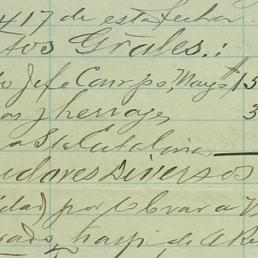 417 de esta fecha.
tos Grales.:
Jefe Campo, Mayo, $15
as y herraje 3
a Sta Catalina
udores Diversos
dad) por Obrar a V
traspº de A Re